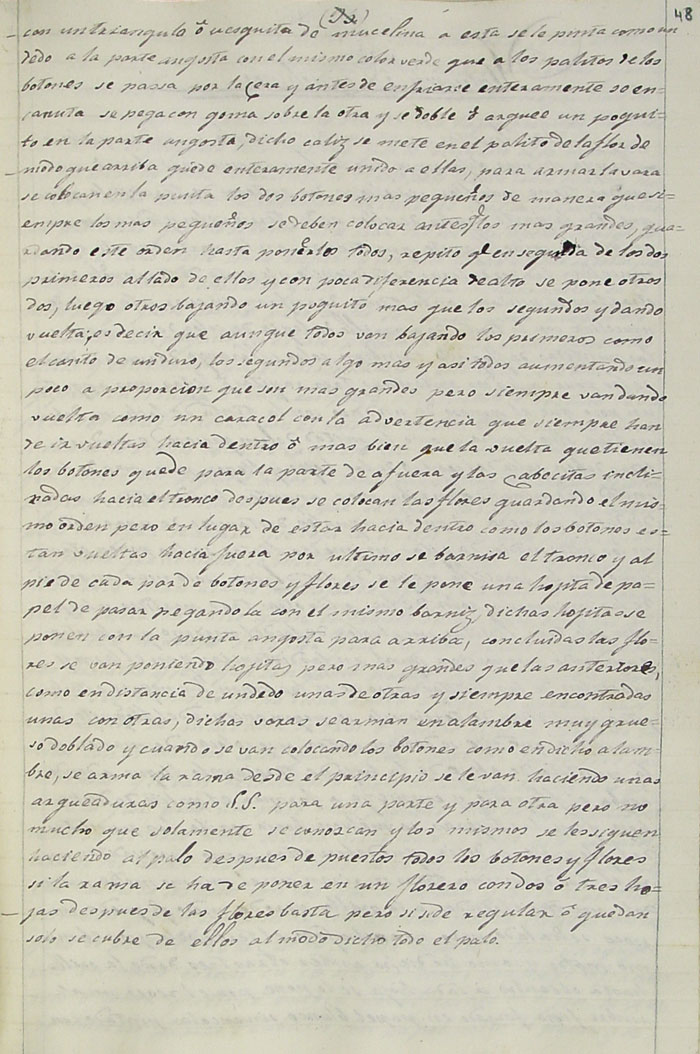 (Ss) 48
con un triangulo ô nesguita de mucelina á esta se le pinta como un
dedo a la parte angosta con el mismo color verde que a los palitos de los
botones se passa por la cera y ántes de enfriarse enteramente so en-
canuta se pega con goma sobre la otra y se doble ô arquee un poqui-
to en la parte angosta, dicho caliz se mete en el palito de la flor de
modo que arriba quéde enteramente unido a ellas, para armar la vara
se colocan en la punta los dos botones mas pequeños de manera que si-
empre los mas pequeños se deben colocar antes q̃ los mas grandes, gua-
rdando este orden hasta ponerlos todos, repito q̃ en seguida de los dos
primeros al lado de ellos y con poca diferencia de alto se pone otros
dos, luego otros bajando un poquito mas que los segundos y dando
vuelta, es decir que aunque todos van bajando los primeros como
el canto de un duro, los segundos algo mas y asi todos aumentando un
poco a proporcion que son mas grandes pero siempre van dando
vuelta como un caracol con la advertencia que siempre han
de ir vueltas hacia dentro ô mas bien que la vuelta que tienen
los botones quede para la parte de afuera y las cabecitas incli-
nadas hacia el tronco despues se colocan las flores guardando el mis-
mo orden pero en lugar de estar hacia dentro como los botones es-
tan vueltas hacia fuera por ultimo se barnisa el tronco y al
pie de cada par de botones y flores se le pone una hojita de pa-
pel de pasar pegandola con el mismo barniz, dichas hojitas se
ponen con la punta angosta para arriba, concluidas las flo-
res se van poniendo hojitas pero mas grandes que las anteriores,
como en distancia de un dedo unas de otras y siempre encontradas
unas con otras, dichas varas se arman en alambre muy grue-
so doblado y cuando se van colocando los botones como en dicho alam-
bre, se arma la rama desde el principio se le van haciendo unas
arqueaduras como S.S. para una parte y para otra pero no
mucho que solamente se conoscan y los mismos se les siguen
haciendo al palo despues de puestos todos los botones y flores
si la rama se ha de poner en un florero con dos ó tres ho-
jas despues de las flores basta pero si es de regular ô quedan
solo se cubre de ellos al modo dicho todo el palo.